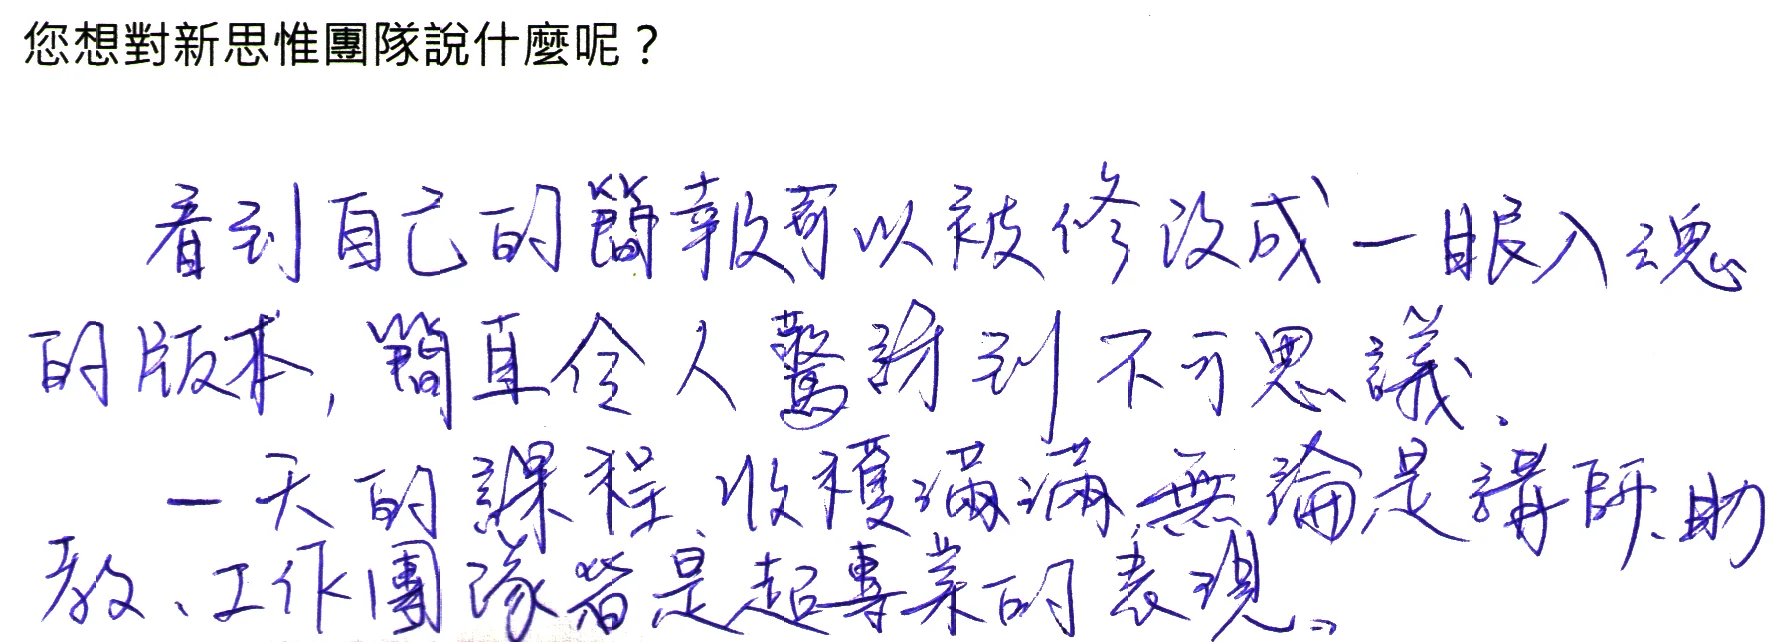 您想對新思惟團隊說什麼呢？
看到自己的簡報可以被修改成一眼入魂
的版本,簡直令人驚訝到不可思議.
一天的課程,收穫滿滿,無論是講師、助
教、工作團隊皆是超專業的表現。